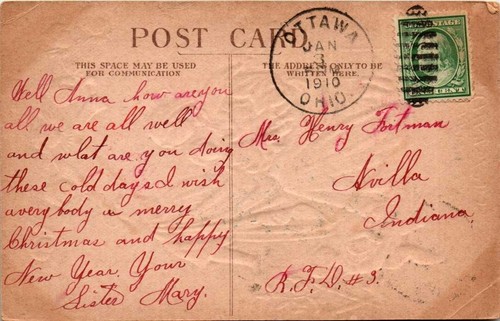 POST CARD
THIS SPACE MAY BE USED
FOR COMMUNICATION
THE ADDRESS ONLY TO BE
WRITTEN HERE.
OTTAWA
JAN
1910
OHIO
Well Anna how are you
all. we are all well
and what are you doing
these cold days I wish
every body a merry
Christmas and happy
New Year. Your
Sister Mary.
Mrs. Henry Fortman
Avilla
Indiana
R.F.D. #3.